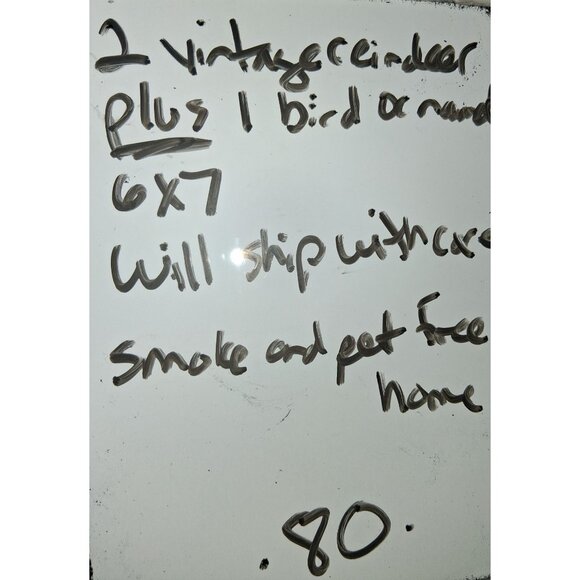 2 vintage reindeer
plus 1 bird ornam
6x7
Will ship with care
smoke and pet free
home
.80.